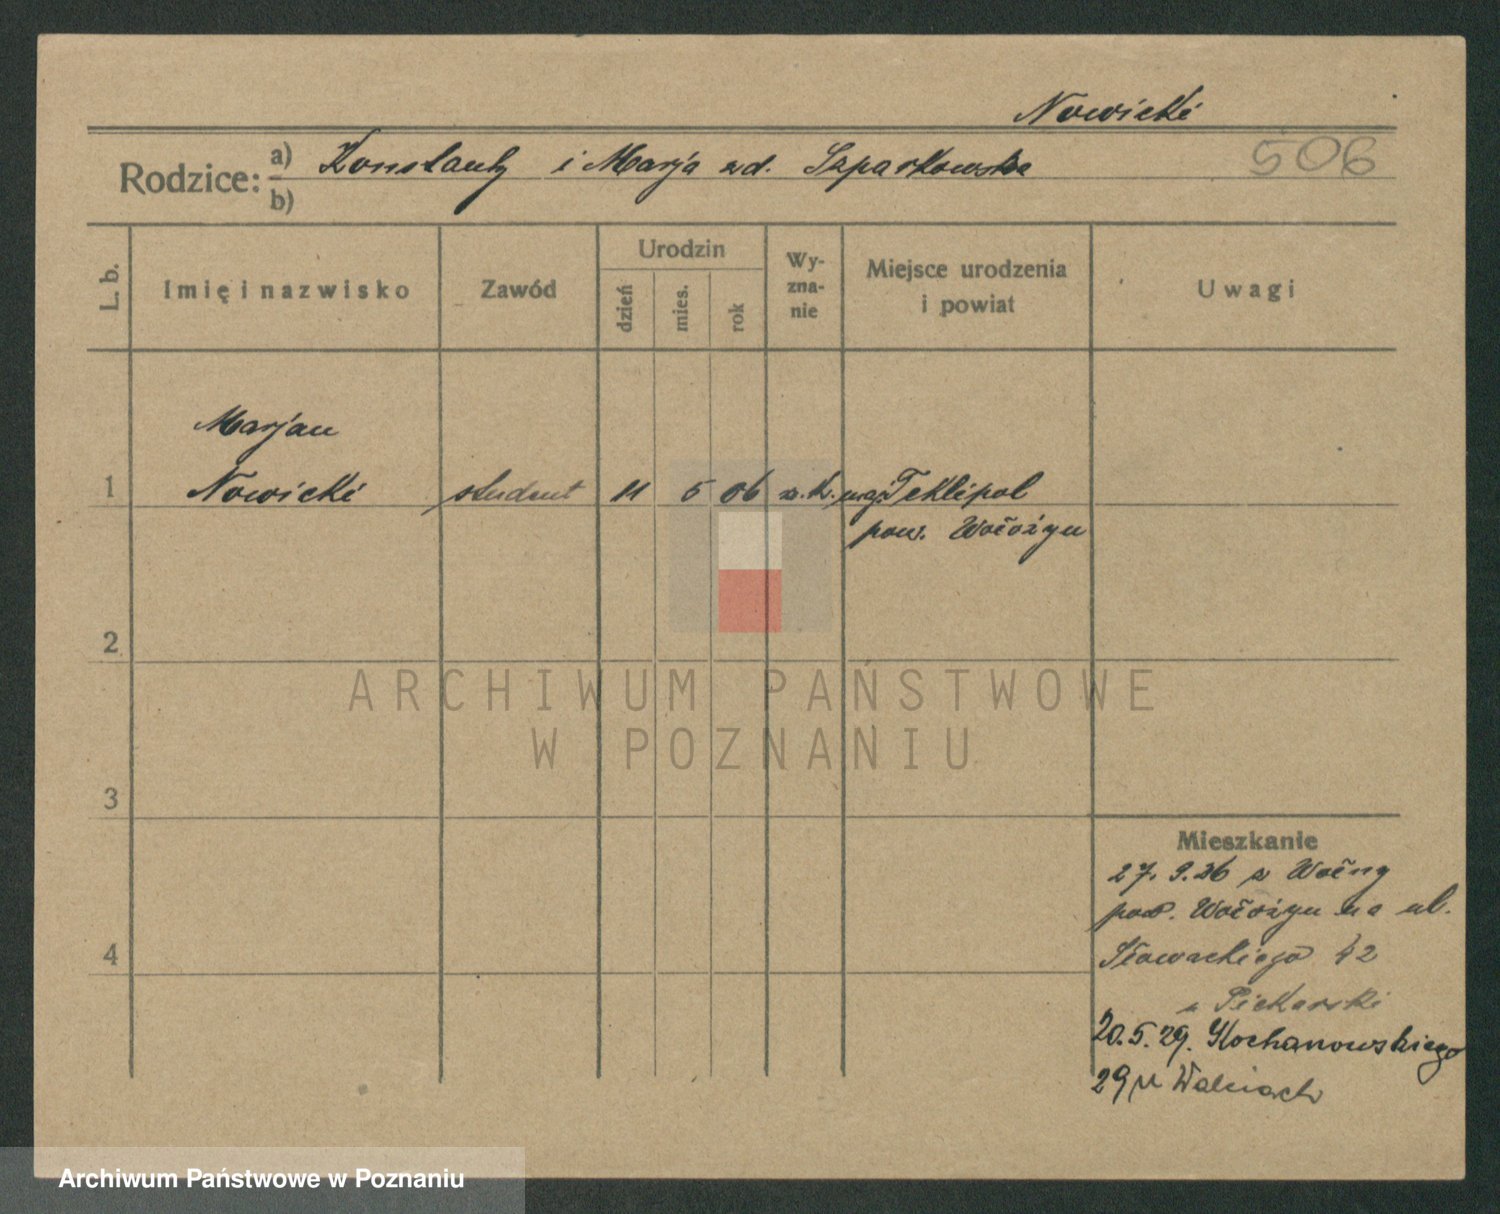 Nowicki
506
Rodzice: a) Konstanty i Marja zd. Szparkowska
b)
L. b.
Imię i nazwisko
Zawód
Urodzin
dzień
mies.
rok
Wy-
zna-
nie
Miejsce urodzenia
i powiat
Uwagi
Marjan
1 Nowicki student 11 5 06 rz.k. maj. Teklipol
pow. Wołożyn
2
ARCHIWUM PAŃSTWOWE
W POZNANIU
3
Mieszkanie
27. 9. 26 z
pow. Wołożyn na ul.
4
Słowackiego 42
u Piekarski
20. 5. 29. Kochanowskiego
29 u
Archiwum Państwowe w Poznaniu